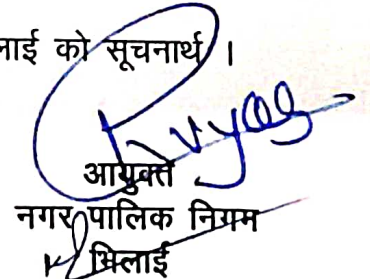 लाई को सूचनार्थ ।
आयुक्त
नगर पालिक निगम
भिलाई